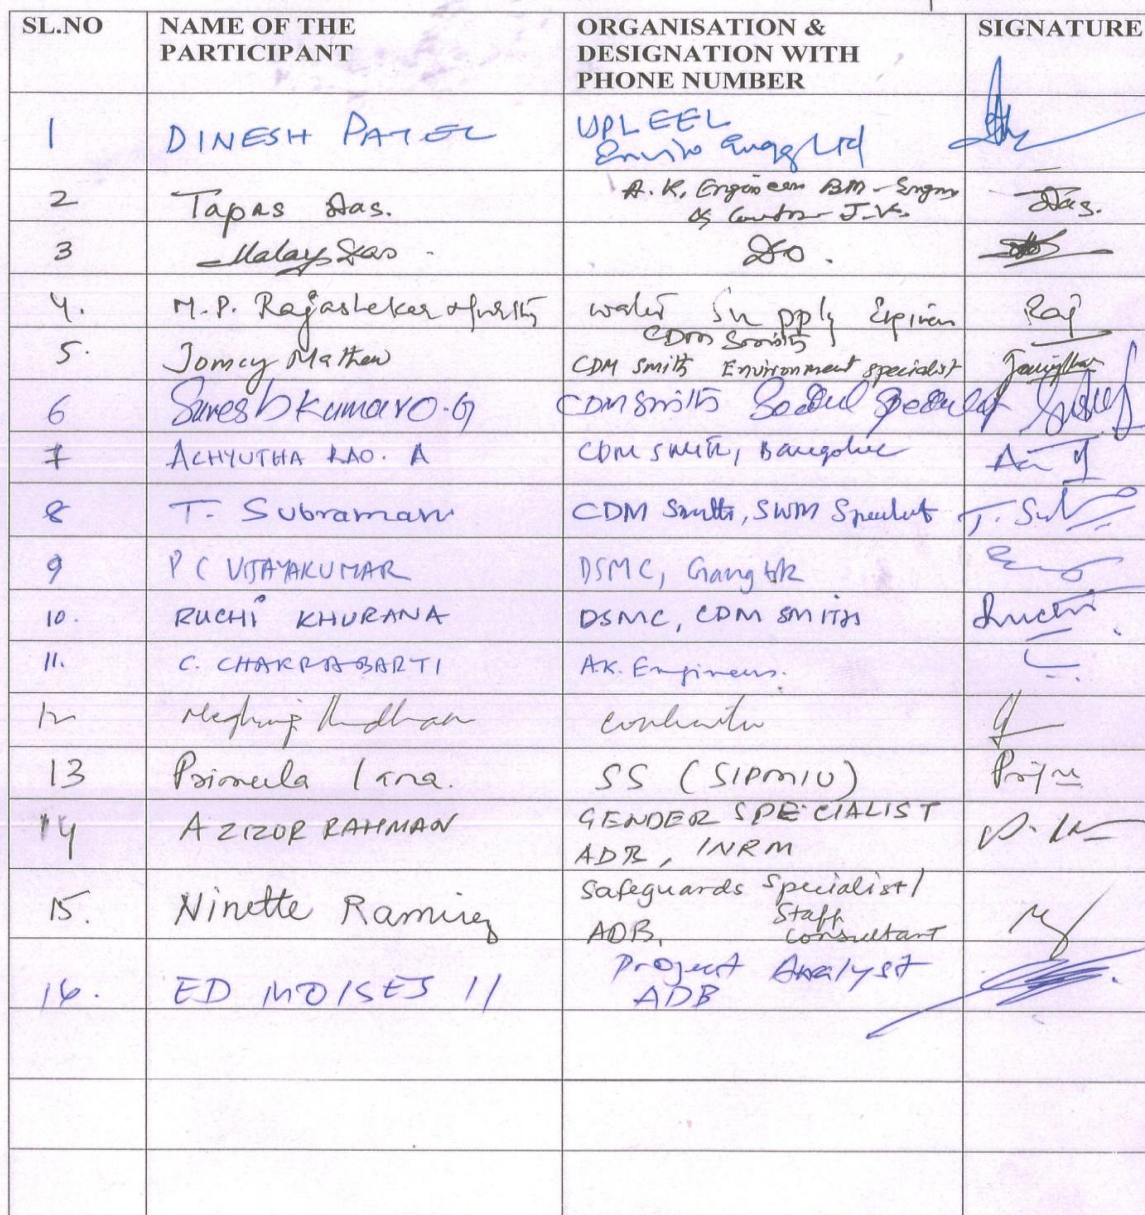 SL.NO NAME OF THE PARTICIPANT ORGANISATION & DESIGNATION WITH PHONE NUMBER SIGNATURE
1 DINESH PATEL UPL EEL
Enviro Engg Ltd
2 Tapas Das. A. K. Engineers BM - Engrs
& J.V. Das.
3 Malay Das Do.
4. M.P. Rajashekar Murthy water Supply Engineer Raj
CDM Smith
5. Jomcy Mathew CDM Smith Environment specialist
6 Suresh Kumar O.G CDM Smith Social Specialist
7 ACHYUTHA RAO. A CDM SMITH, Bangalore
8 T. Subramani CDM Smith, SWM Specialist T. Sub
9 P C VIJAYAKUMAR DSMC, Gangtok
10. RUCHI KHURANA DSMC, CDM SMITH Ruchi
11. C. CHAKRABARTI A.K. Engineers.
12
13 SS (SIPMIU)
14 AZIZOR RAHMAN GENDER SPECIALIST
ADB, INRM
15. Ninette Ramirez Safeguards Specialist/
ADB, Staff consultant
16. ED MOISES II Project Analyst
ADB